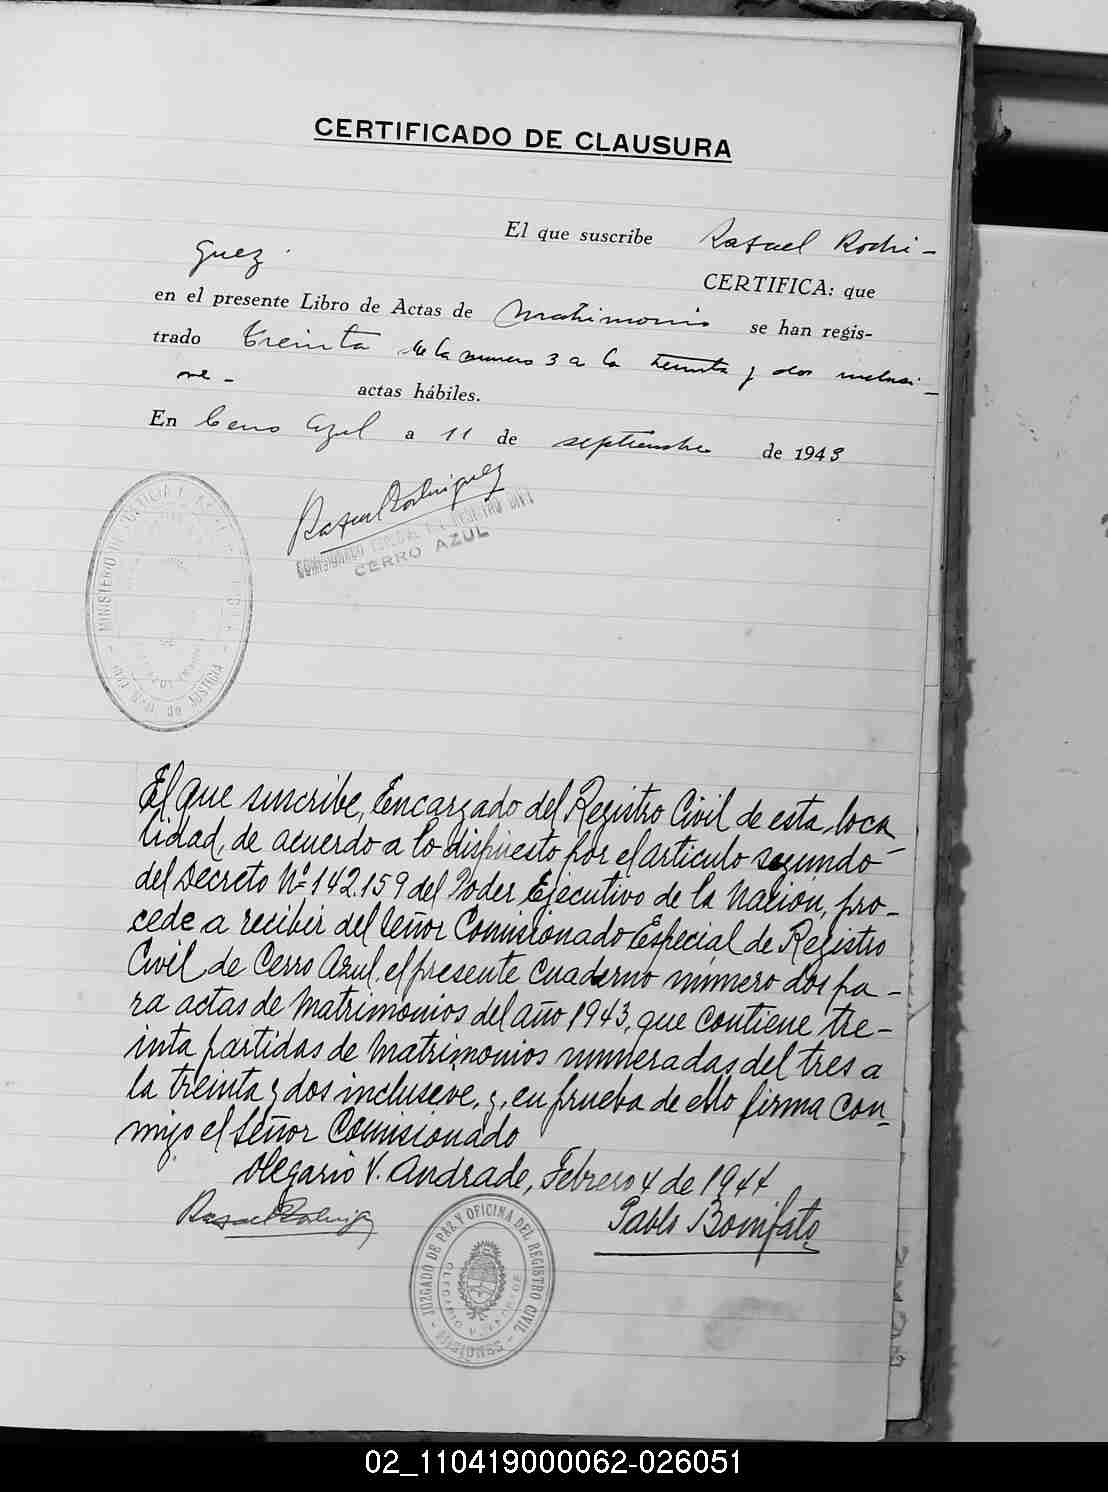 CERTIFICADO DE CLAUSURA
El que suscribe Rafael Rodri-
guez. CERTIFICA: que
en el presente Libro de Actas de Matrimonio se han regis-
trado treinta de la numero 3 a la treinta y dos inclusi-
ve - actas hábiles.
En Cerro Azul a 11 de septiembre de 1943
Rafael Rodriguez
COMISIONADO ESPECIAL REGISTRO CIVIL
CERRO AZUL
MINISTERIO DE JUSTICIA E
JUSTICIA
El que suscribe, Encargado del Registro Civil de esta loca_
lidad, de acuerdo a lo dispuesto por el articulo segundo
del Decreto Nº 142.159 del Poder Ejecutivo de la Nación, pro-
cede a recibir del señor Comisionado Especial de Registro
Civil de Cerro Azul, el presente cuaderno número dos pa-
ra actas de Matrimonios del año 1943, que contiene tre-
inta partidas de Matrimonios numeradas del tres a
la treinta y dos incluseve, y, en prueba de ello firma con_
migo el señor Comisionado
Olegario V. Andrade, Febrero 4 de 1944
Rafael Rodrigz Pablo Bonifato
JUZGADO DE PAZ Y OFICINA DEL REGISTRO CIVIL
OLEGARIO V. ANDRADE
MISIONES
02_110419000062-026051